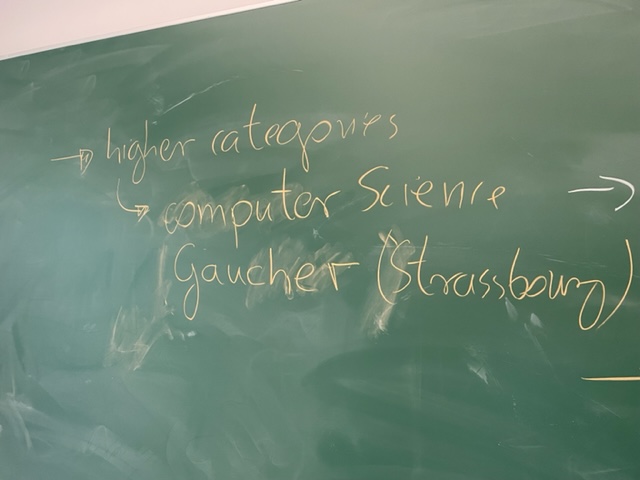 → higher categories
↳ computer Science →
Gaucher (Strassbourg)